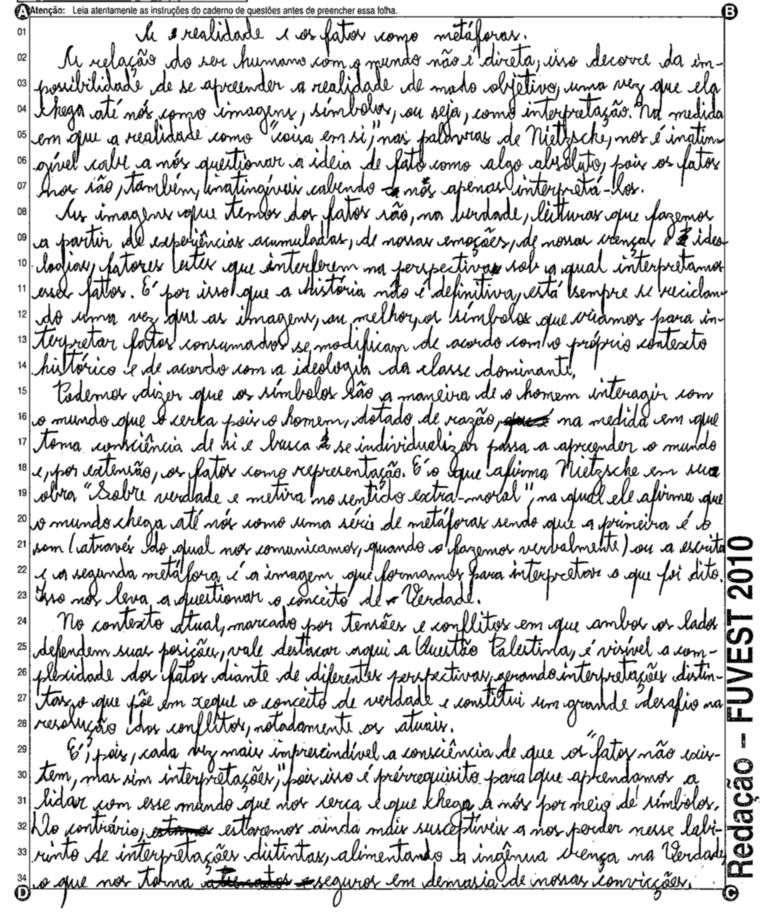 A Atenção: Leia atentamente as instruções do caderno de questões antes de preencher essa folha. B
01 A realidade e os fatos como metáforas.
02 A relação do ser humano com o mundo não é direta, isso decorre da im-
03 possibilidade de se apreender a realidade de modo objetivo, uma vez que ela
04 chega até nós como imagens, símbolos, ou seja, como interpretação. Na medida
05 em que a realidade como "coisa em si", nas palavras de Nietzsche, nos é inatin-
06 gível cabe a nós questionar a ideia de fato como algo absoluto, pois os fatos
07 nos são, também, inatingíveis cabendo a nós apenas interpretá-los.
08 As imagens que temos dos fatos são, na verdade, leituras que fazemos
09 a partir de experiências acumuladas, de nossas emoções, de nossas crenças e ideo
10 logias, fatores estes que interferem na perspectiva sob a qual interpretamos
11 esses fatos. É por isso que a história não é definitiva, está sempre se reciclan-
12 do uma vez que as imagens, ou melhor, os símbolos que criamos para in-
13 terpretar fatos consumados se modificam de acordo com o próprio contexto
14 histórico e de acordo com a ideologia da classe dominante.
15 Podemos dizer que os símbolos são a maneira de o homem interagir com
16 o mundo que o cerca pois o homem, dotado de razão, na medida em que
17 toma consciência de si e busca se individualizar passa a apreender o mundo
18 e, por extensão, os fatos como representação. É o que afirma Nietzsche em sua
19 obra "Sobre verdade e metira no sentido extra-moral", na qual ele afirma que
20 o mundo chega até nós como uma série de metáforas sendo que a primeira é o
21 som (através do qual nos comunicamos, quando o fazemos verbalmente) ou a escrita
22 e a segunda metáfora é a imagem que formamos para interpretar o que foi dito.
23 Isso nos leva a questionar o conceito de Verdade.
24 No contexto atual, marcado por tensões e conflitos em que ambos os lados
25 defendem suas posições, vale destacar aqui a Questão Palestina, é visível a com-
26 plexidade dos fatos diante de diferentes perspectivas, gerando interpretações distin-
27 tas, o que põe em xeque o conceito de verdade e constitui um grande desafio na
28 resolução dos conflitos, notadamente os atuais.
29 É, pois, cada vez mais imprescindível a consciência de que os "fatos não exis-
30 tem, mas sim interpretações", pois isso é prérrequisito para que aprendamos a
31 lidar com esse mundo que nos cerca e que chega a nós por meio de símbolos.
32 Do contrário, estaremos ainda mais susceptíveis a nos perder nesse labi-
33 rinto de interpretações distintas, alimentando a ingênua crença na Verdade
34 o que nos torna seguros em demasia de nossas convicções.
D C
Redação – FUVEST 2010